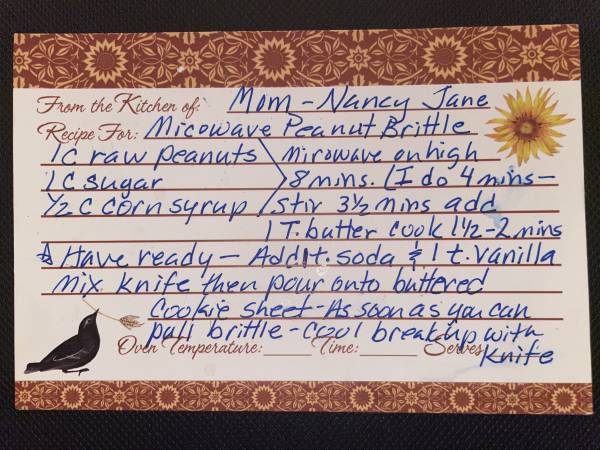 From the Kitchen of: Mom - Nancy Jane
Recipe For: Micowave Peanut Brittle
1 c raw peanuts Mirowave on high
1 c sugar 8 mins. (I do 4 mins -
1/2 c corn syrup stir 3 1/2 mins add
1 T. butter cook 1 1/2 - 2 mins
☆ Have ready - Add 1 t. soda & 1 t. vanilla
mix knife then pour onto buttered
cookie sheet - As soon as you can
pull brittle - cool break up with
Oven Temperature: Time: Serves knife